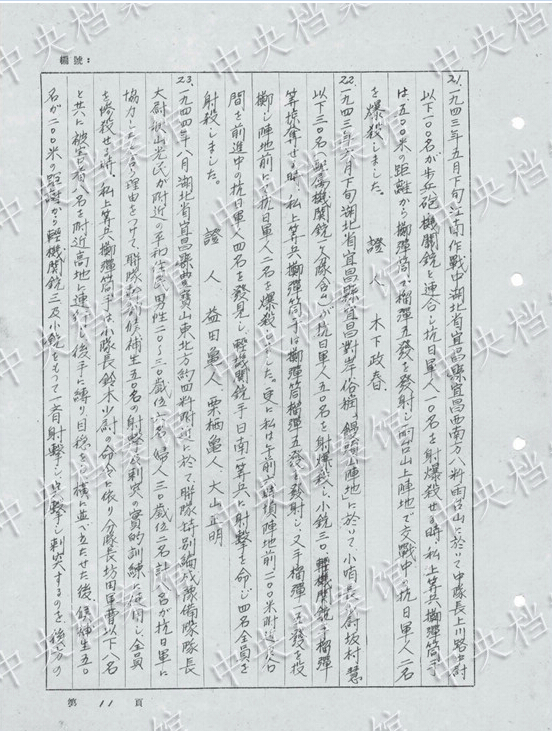 編號:
21.一九四三年五月下旬江南作戰中湖北省宜昌縣宜昌西南方八粁雨台山に於いて中隊長上川路中尉
以下一〇〇名が歩兵砲機関銃と連合し抗日軍人一〇名を射爆殺せる時、私上等兵擲彈筒手
は、五〇〇米の距離から擲彈筒で榴彈五發を發射し雨台山上陣地で交戰中の抗日軍人二名
を爆殺しました。 證 人 木下政春
22.一九四三年六月下旬湖北省宜昌縣宜昌對岸 陣地に於いて小哨長少尉坂村慧
以下三〇名(配屬機関銃一ケ分隊含)が抗日軍人五〇名を射爆殺し小銃三〇、輕機関銃一、榴彈
等掠奪せる時、私上等兵擲彈筒手は擲彈筒榴彈五發を發射し、又手榴彈一五發を投
擲し陣地前にて抗日軍人二名を爆殺しました。更に私は午前六時頃陣地前二〇〇米附近
間を前進中の抗日軍人四名を發見し、輕機関銃手日南一等兵に射擊を命じ四名全員を
射殺しました。 證 人 益田亀人 栗栖亀人 大山正明
23.一九四四年八月湖北省宜昌縣當 寶山東北方約四粁附近に於て聯隊特別編成豫備隊隊長
大尉秋山 氏が附近の平和住民男性二〇~三〇歳位六名婦人三〇歳位二名計八名が抗日軍に
協力したと云う理由をつけて聯隊幹部候補生五〇名の射擊及刺突の實的訓練に使用し、全員
を慘殺せる時、私上等兵擲彈筒手は小隊長鈴木少尉の命令に依り分隊長坊田軍曹以下八名
と共に被害者八名を附近高地に連行し後手に縛り、目隠をし横に並べ立たせた後、候補生五〇
名が二〇〇米の距離から輕機関銃三及小銃をもって一斉射擊し突擊し刺突するのを、後方の
第 11 頁